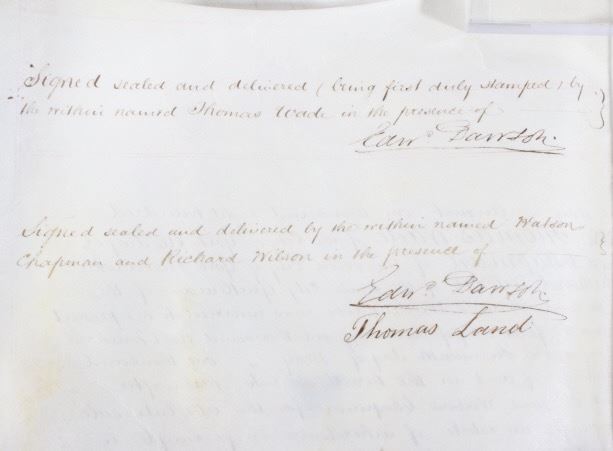 Signed sealed and delivered (being first duly stamped) by
the within named Thomas Wade in the presence of
Edwd. Dawson.
Signed sealed and delivered by the within named Watson
Chapman and Richard Wilson in the presence of
Edwd. Dawson.
Thomas Land